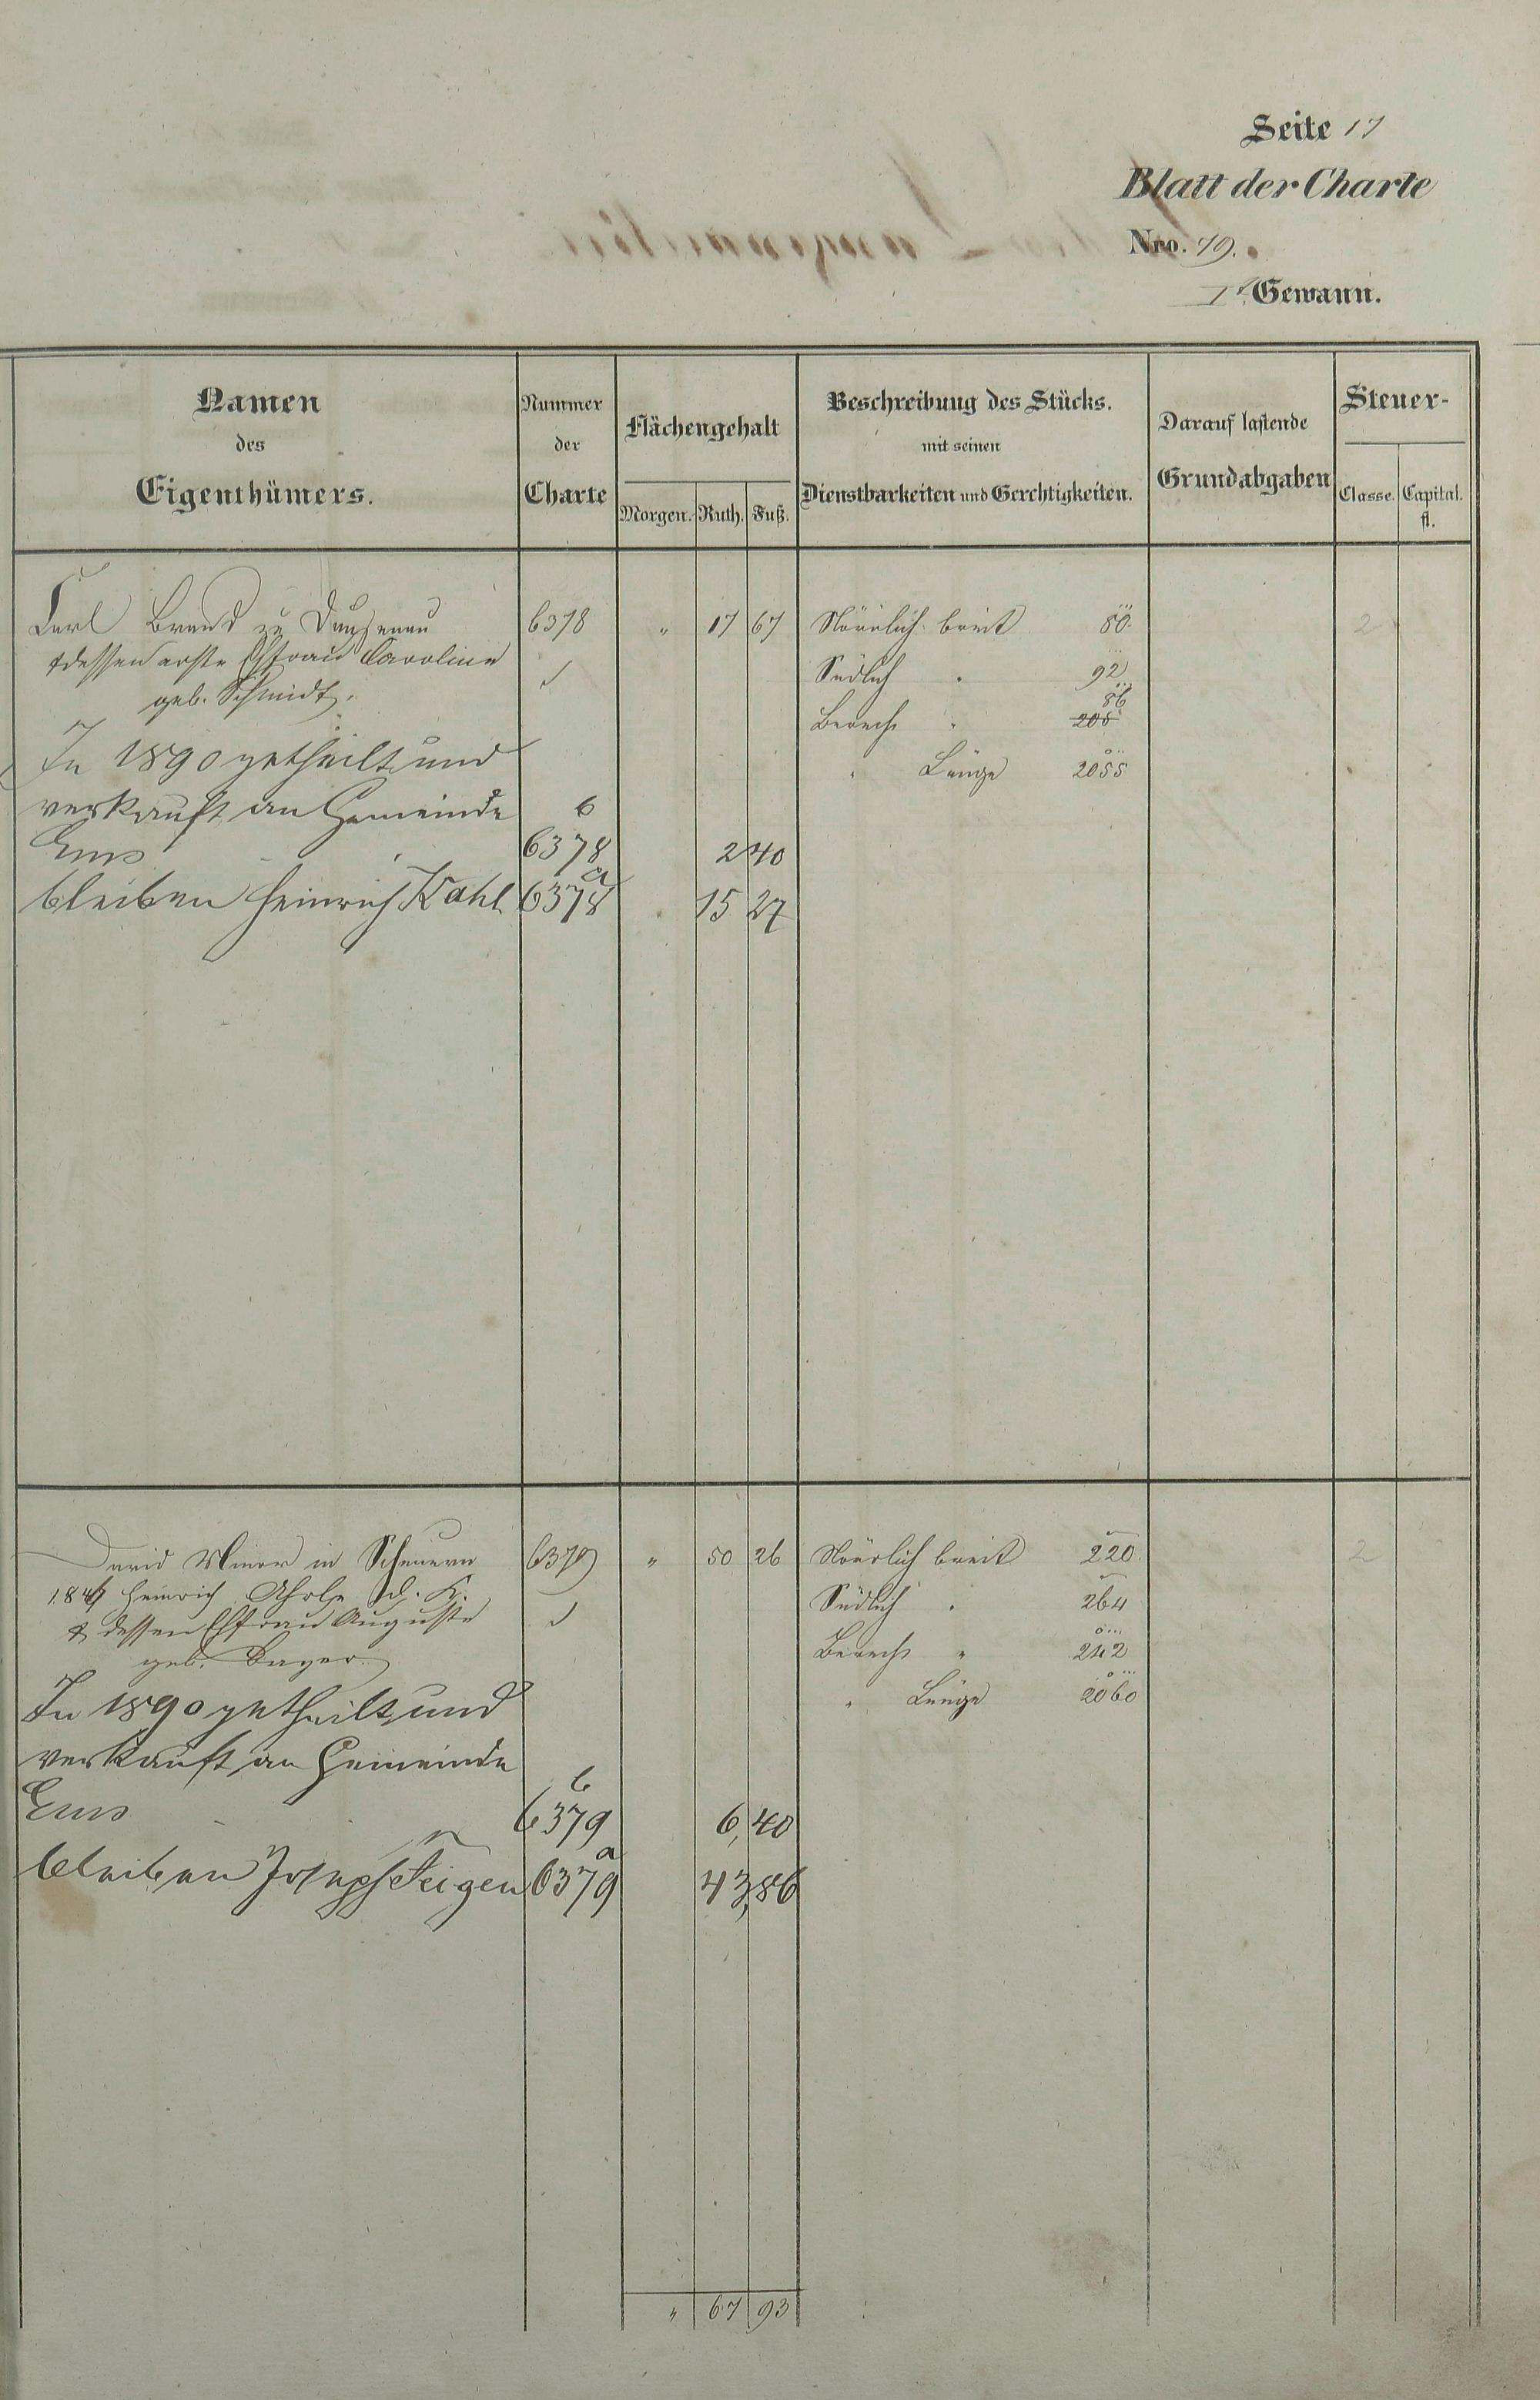 Seite 17
Blatt der Charte
Nro. 79.
1r Gewann.
Namen des Eigenthümers.
Nummer der Charte
Flächengehalt
Morgen. Ruth. Fuß.
Beschreibung des Stücks.
mit seinen
Dienstbarkeiten und Gerechtigkeiten.
Darauf lastende
Grundabgaben
Steuer-
Classe. Capital.
fl.
Carl Brand zu Dausenau 6378 " 17 67 Nördlich breit 80 2
& dessen erste Ehefrau Caroline Südlich " 92
geb. Schmidt. 86
Berech " 208
In 1890 getheilt und " Länge 2055
verkauft an Gemeinde b
Ems 6378 2 40
a
bleiben Heinrich Kahl 6378 15 27
David Minor in Scheuern 6379 " 50 26 Nördlich breit 220 2
Heinrich d. K. Südlich " 264
& dessen Ehefrau Auguste
geb. Bayer. Berech " 242
In 1890 getheilt und " Länge 2060
verkauft an Gemeinde b
Ems 6379 6,40
a
bleiben Joseph Feigen 6379 43,86
" 67 93